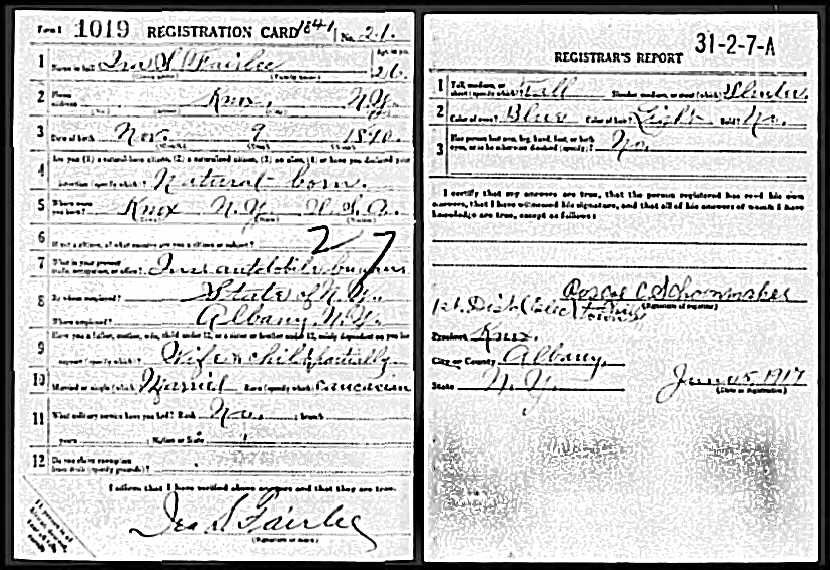 Form 1 1019 REGISTRATION CARD 1841 No. 21
1 Name in full Ira S Fairlee Age, in yrs. 26
(Given name) (Family name)
2 Home address Knox, N.Y.
(No.) (Street) (City) (State)
3 Date of birth Nov. 9 1890
(Month) (Day) (Year)
4 Are you (1) a natural-born citizen, (2) a naturalized citizen, (3) an alien, (4) or have you declared your
intention (specify which)? Natural-born.
5 Where were you born? Knox N.Y. U.S.A.
(Town) (State) (Nation)
6 If not a citizen, of what country are you a citizen or subject?
27
7 What is your present trade, occupation, or office?
8 By whom employed? State of N.Y.
Where employed? Albany N.Y.
9 Have you a father, mother, wife, child under 12, or a sister or brother under 12, solely dependent on you for
support (specify which)? Wife & child partially
10 Married or single (which)? Married Race (specify which)? Caucasian
11 What military service have you had? Rank No. ; branch
years ; Nation or State
12 Do you claim exemption from draft (specify grounds)?
I affirm that I have verified above answers and that they are true.
Ira S Fairlee
(Signature or mark)
REGISTRAR'S REPORT 31-2-7-A
1 Tall, medium, or short (specify which)? Tall Slender, medium, or stout (which)? Slender
2 Color of eyes? Blue Color of hair? Light Bald? No.
3 Has person lost arm, leg, hand, foot, or both eyes, or is he otherwise disabled (specify)? No.
I certify that my answers are true, that the person registered has read his own
answers, that I have witnessed his signature, and that all of his answers of which I have
knowledge are true, except as follows:
Roscoe C Schoonmaker
(Signature of registrar)
1st. Dist (Elec) town
Precinct Knox.
City or County Albany.
State N.Y. June 5, 1917
(Date of registration)